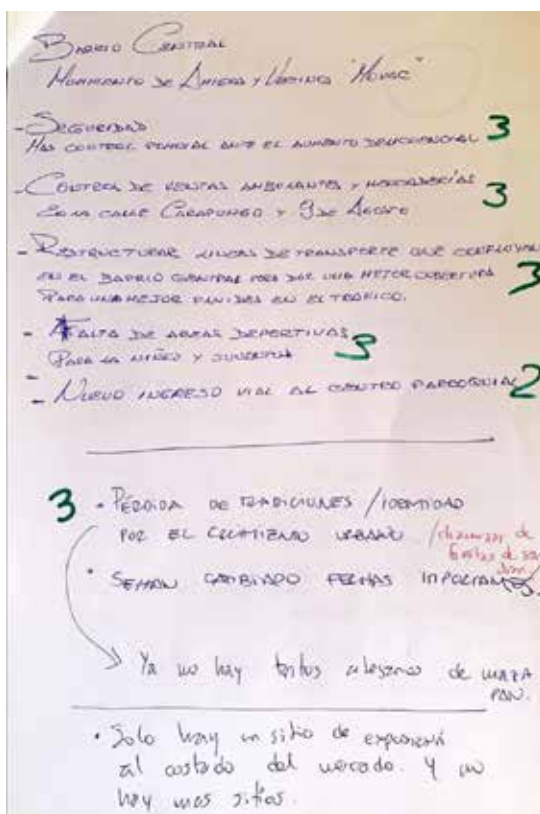 BARRIO CENTRAL
MOVIMIENTO DE AMIGOS Y VECINOS "MOVAC"
- SEGURIDAD
MAS CONTROL POLICIAL ANTE EL AUMENTO DELINCUENCIAL 3
- CONTROL DE VENTAS AMBULANTES Y MERCADERÍAS 3
EN LA CALLE CARAPUNGO Y 9 DE AGOSTO
- RESTRUCTURAR LINEAS DE TRANSPORTE QUE CONFLUYEN
EN EL BARRIO CENTRAL PARA DAR UNA MEJOR COBERTURA 3
PARA UNA MEJOR FLUIDEZ EN EL TRAFICO.
- FALTA DE AREAS DEPORTIVAS 3
PARA LA NIÑEZ Y JUVENTUD
- NUEVO INGRESO VIAL AL CENTRO PARROQUIAL 2
3 - PÉRDIDA DE TRADICIONES / IDENTIDAD
POR EL CRECIMIENTO URBANO / de
fiestas de san
• SE HAN CAMBIADO FECHAS IMPORTANTES
Ya no hay tantos artesanos de maza
PAN.
• Solo hay un sitio de exposición
al costado del mercado. Y no
hay mas sitios.